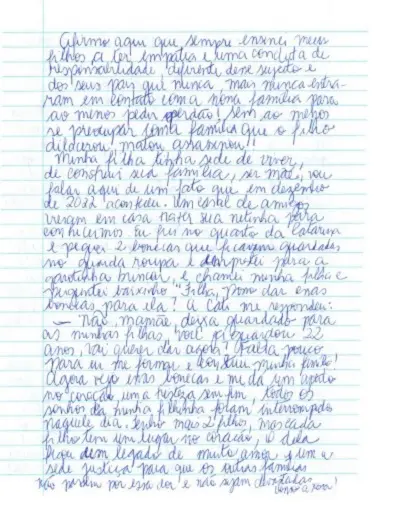 Afirmo aqui que sempre ensinei meus
filhos a ter empatia e uma conduta de
responsabilidade, diferente desse sujeito e
dos seus pais que nunca, mas nunca entra-
ram em contato com a nossa família para
ao menos pedir perdão! Sem ao menos
se preocupar com a família que o filho
dilacerou! matou, assassinou!!
Minha filha tinha sede de viver,
de construir sua família, ser mãe, vou
falar aqui de um fato que em dezembro
de 2022 aconteceu. Um casal de amigos
vieram em casa trazer sua netinha para
conhecermos. Eu fui no quarto da Catarina
e peguei 2 bonecas que ficavam guardadas
no guarda roupa e para a
garotinha brincar, e chamei minha filha e
perguntei baixinho "Filha, posso dar essas
bonecas para ela? a Cati me respondeu:
— Não, mamãe, deixa guardado para
as minhas filhas, você já guardou 22
anos, vai querer dar agora? Falta pouco
para eu me formar e construir minha família!
Agora vejo essas bonecas e me dá um aperto
no coração, uma tristeza sem fim, todos os
sonhos da minha filhinha foram interrompidos
naquele dia. Tenho mais 2 filhos, mas cada
filho tem um lugar no coração, o dela
ficou um legado de muito amor, e uma
sede justiça para que as outras famílias
não passem por essa dor e não sejam devastadas
como a nossa!